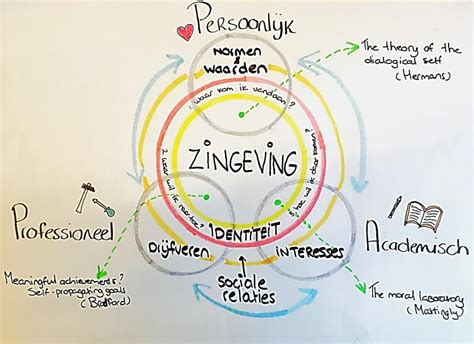 Persoonlijk
Normen
&
waarden
The theory of the
dialogical self
(Hermans)
1 waar kom ik vandaan?
ZINGEVING
2 waar wil ik naartoe?
3 hoe wil ik daar komen?
IDENTITEIT
Professioneel
Academisch
Drijfveren
INTERESSES
sociale
relaties
Meaningful achievements?
Self-propagating goals
(Bradford)
The moral laboratory
(Mattingly)